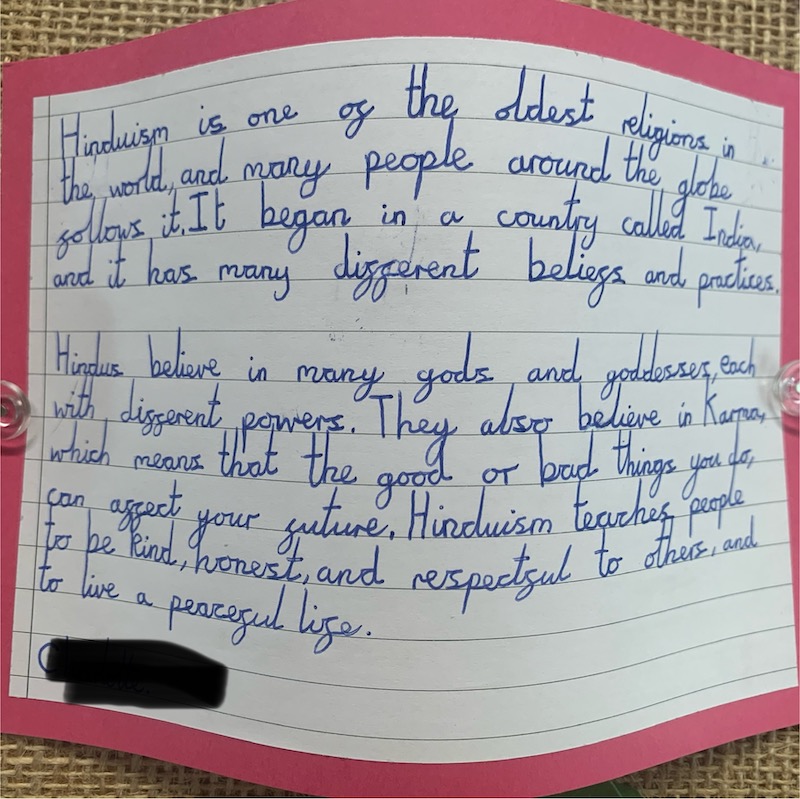 Hinduism is one of the oldest religions in
the world, and many people around the globe
follows it. It began in a country called India,
and it has many different beliefs and practices.
Hindus believe in many gods and goddesses, each
with different powers. They also believe in Karma,
which means that the good or bad things you do,
can affect your future. Hinduism teaches people
to be kind, honest, and respectful to others, and
to live a peaceful life.